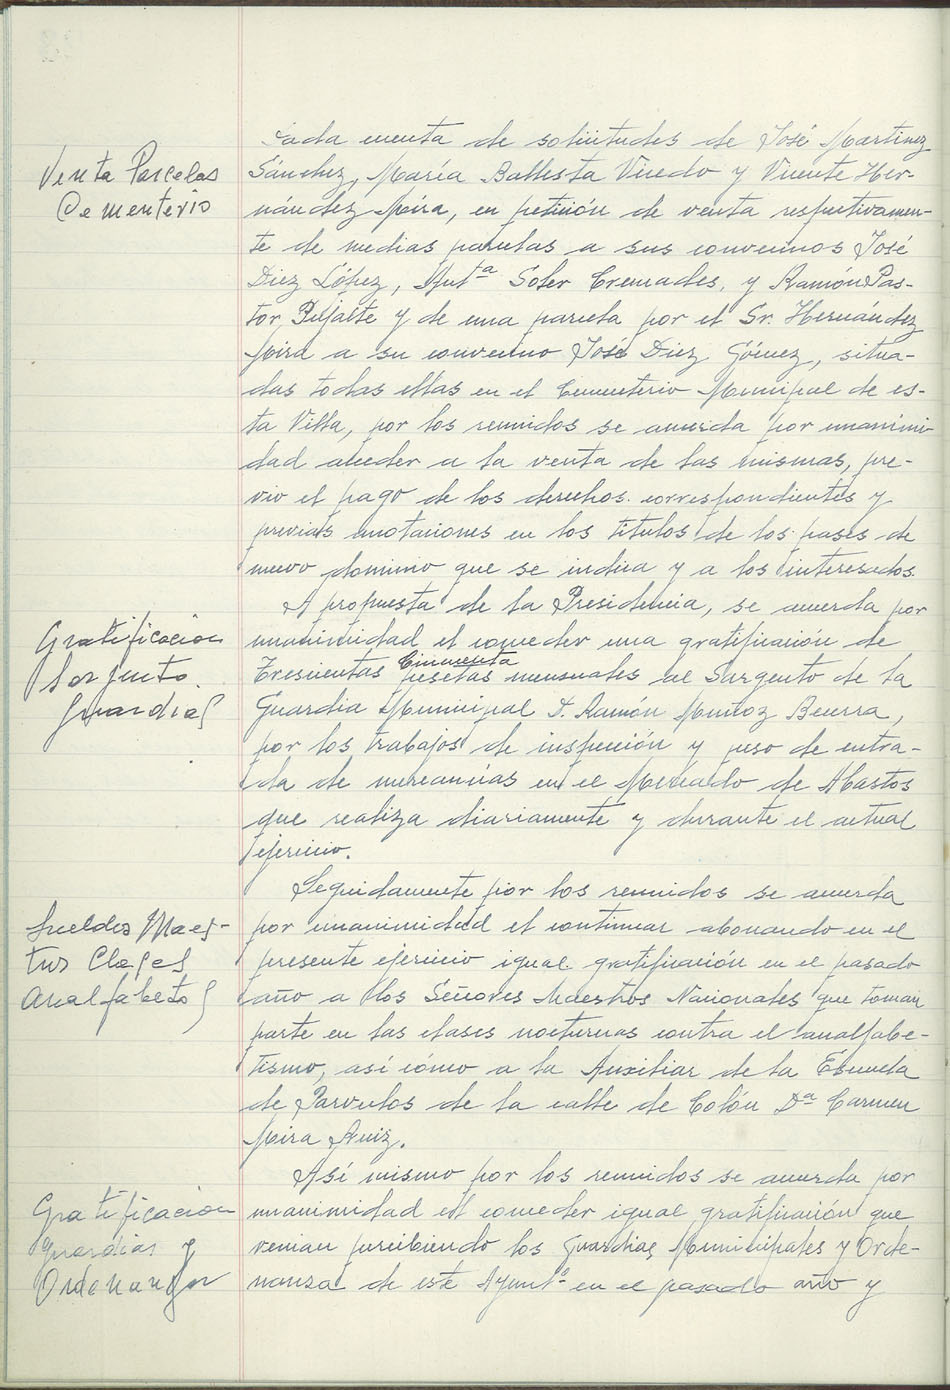 Venta Parcelas
Cementerio
Dada cuenta de solicitudes de José Martinez
Sánchez, María Ballesta Vicedo y Vicente Her-
nández Mira, en petición de venta respectivamen-
te de medias parcelas a sus convecinos José
Diez López, Antª Soler Cremades, y Ramón Pas-
tor Pujalte y de una parcela por el Sr. Hernández
Mira a su convecino José Diez Gómez, situa-
das todas ellas en el Cementerio Municipal de es-
ta Villa, por los reunidos se acuerda por unanimi-
dad acceder a la venta de las mismas, pre-
vio el pago de los derechos correspondientes y
previas anotaciones en los titulos de los pases de
nuevo dominio que se indica y a los interesados.
Gratificacion
Sargento
Guardias
A propuesta de la Presidencia, se acuerda por
unanimidad el conceder una gratificación de
Cincuenta
Trescientas pesetas mensuales al Sargento de la
Guardia Municipal D. Ramón Muñoz Becerra,
por los trabajos de inspección y peso de entra-
da de mercancías en el Mercado de Abastos
que realiza diariamente y durante el actual
ejercicio.
Sueldos Maes-
tros Clases
Analfabetos
Seguidamente por los reunidos se acuerda
por unanimidad el continuar abonando en el
presente ejercicio igual gratificación en el pasado
año a los Señores Maestros Nacionales que toman
parte en las clases nocturnas contra el analfabe-
tismo, así cómo a la Auxiliar de la Escuela
de Parvulos de la calle de Colón Dª Carmen
Mira Ruiz.
Gratificacion
Guardias y
Ordenanzas
Así mismo por los reunidos se acuerda por
unanimidad el conceder igual gratificación que
venian percibiendo los Guardias Municipales y Orde-
nanzas de este Ayuntº en el pasado año y